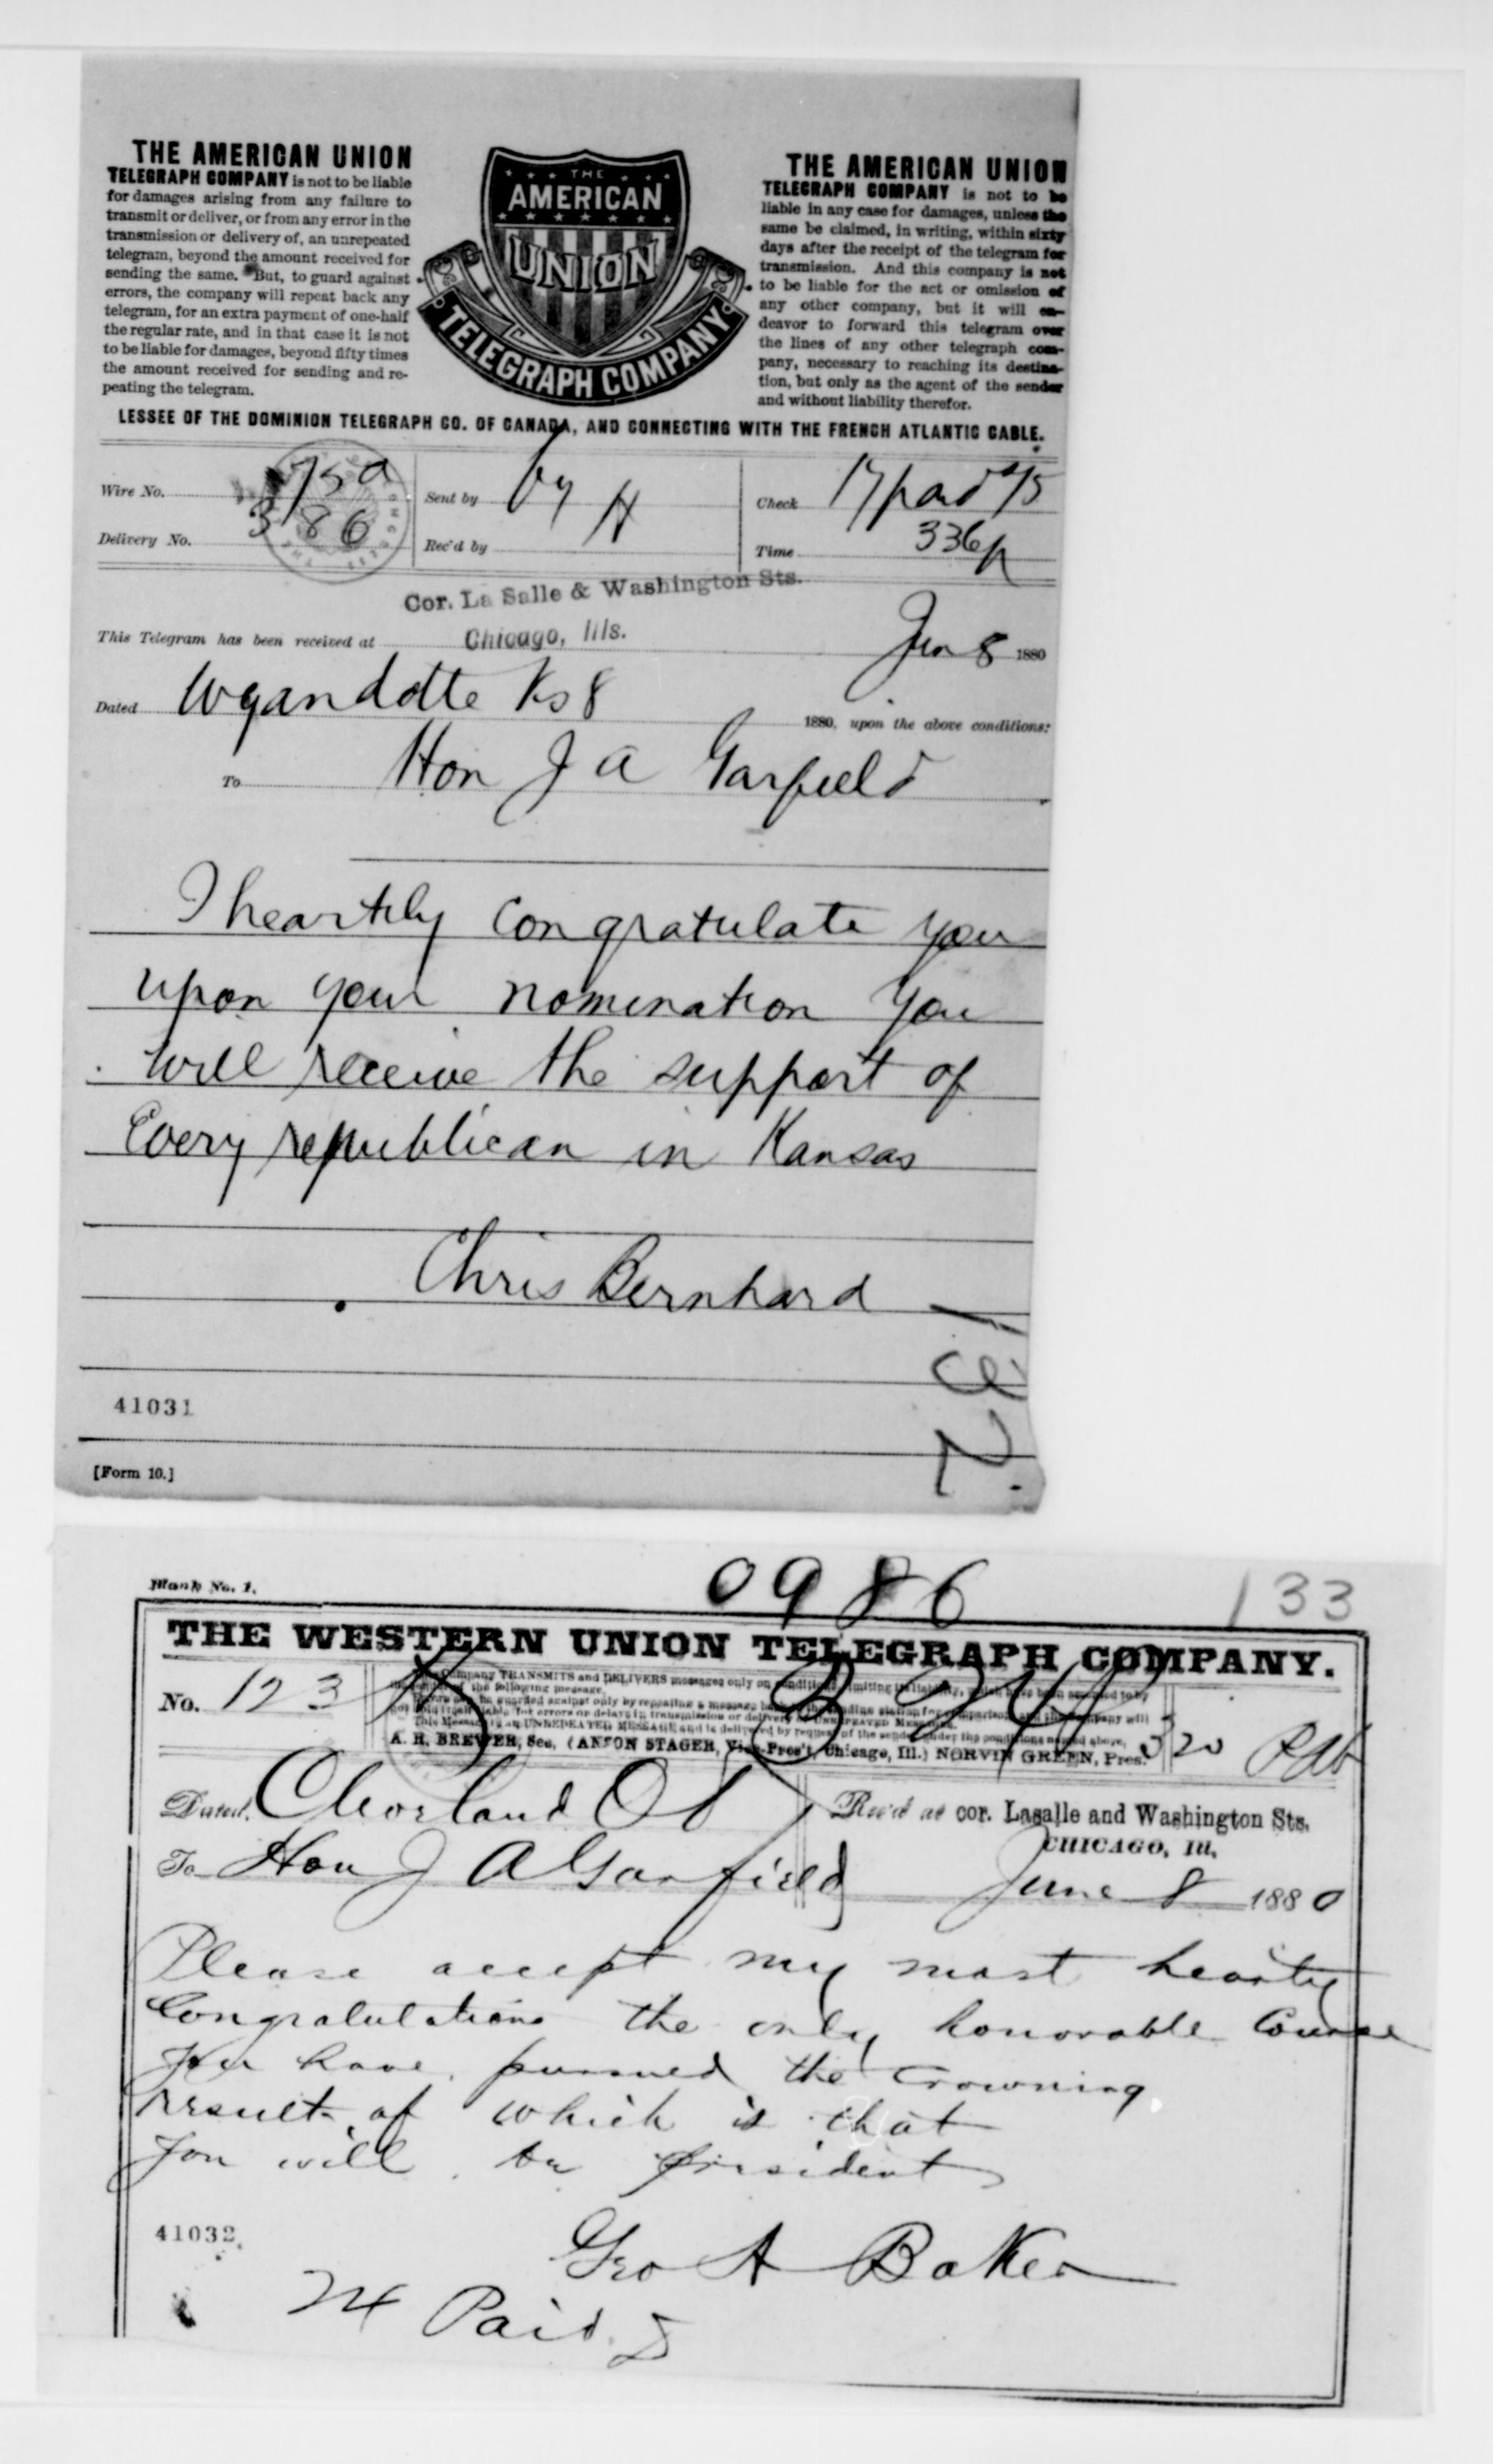 THE AMERICAN UNION
TELEGRAPH COMPANY is not to be liable
for damages arising from any failure to
transmit or deliver, or from any error in the
transmission or delivery of, an unrepeated
telegram, beyond the amount received for
sending the same. But, to guard against
errors, the company will repeat back any
telegram, for an extra payment of one-half
the regular rate, and in that case it is not
to be liable for damages, beyond fifty times
the amount received for sending and re-
peating the telegram.
THE
AMERICAN
UNION
TELEGRAPH COMPANY
THE AMERICAN UNION
TELEGRAPH COMPANY is not to be
liable in any case for damages, unless the
same be claimed, in writing, within sixty
days after the receipt of the telegram for
transmission. And this company is not
to be liable for the act or omission of
any other company, but it will en-
deavor to forward this telegram over
the lines of any other telegraph com-
pany, necessary to reaching its destina-
tion, but only as the agent of the sender
and without liability therefor.
LESSEE OF THE DOMINION TELEGRAPH CO. OF CANADA, AND CONNECTING WITH THE FRENCH ATLANTIC CABLE.
Wire No.
Delivery No. 386
Sent by
Rec'd by H
Check 17 paid
Time 336p
Cor. La Salle & Washington Sts.
This Telegram has been received at Chicago, Ills. Jun 8 1880
Dated Wyandotte Ks 8 1880, upon the above conditions:
To Hon J A Garfield
I heartily congratulate you
upon your nomination you
will receive the support of
Every republican in Kansas
Chris Bernhard
132
41031
[Form 10.]
0986
133
Blank No. 1.
THE WESTERN UNION TELEGRAPH COMPANY.
No. 123
Company TRANSMITS and DELIVERS messages only on conditions limiting its liability, which have been assented to by
of the following message.
This Message is an UNREPEATED MESSAGE and is delivered by request of the sender under the conditions named above,
A. R. BREWER, Sec. (ANSON STAGER, Vice-Pres't, Chicago, Ill.) NORVIN GREEN, Pres.
320
Dated Cleveland O 8
Rec'd at cor. Lasalle and Washington Sts.
CHICAGO, Ill.
To Hon J A Garfield June 8 1880
Please accept my most hearty
Congratulations the only honorable Course
You have pursued the Crowning
result of which is that
You will be president
41032
Geo A Baker
24 Paid